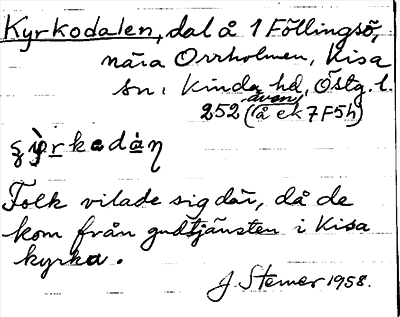 Kyrkodalen, dal å 1 Föllingsö,
nära Orrholmen, Kisa
sn, Kinda hd, Östg. l.
252 (även å ek 7F5h)
Folk vilade sig där, då de
kom från gudstjänsten i Kisa
kyrka.
J. Sterner 1958.